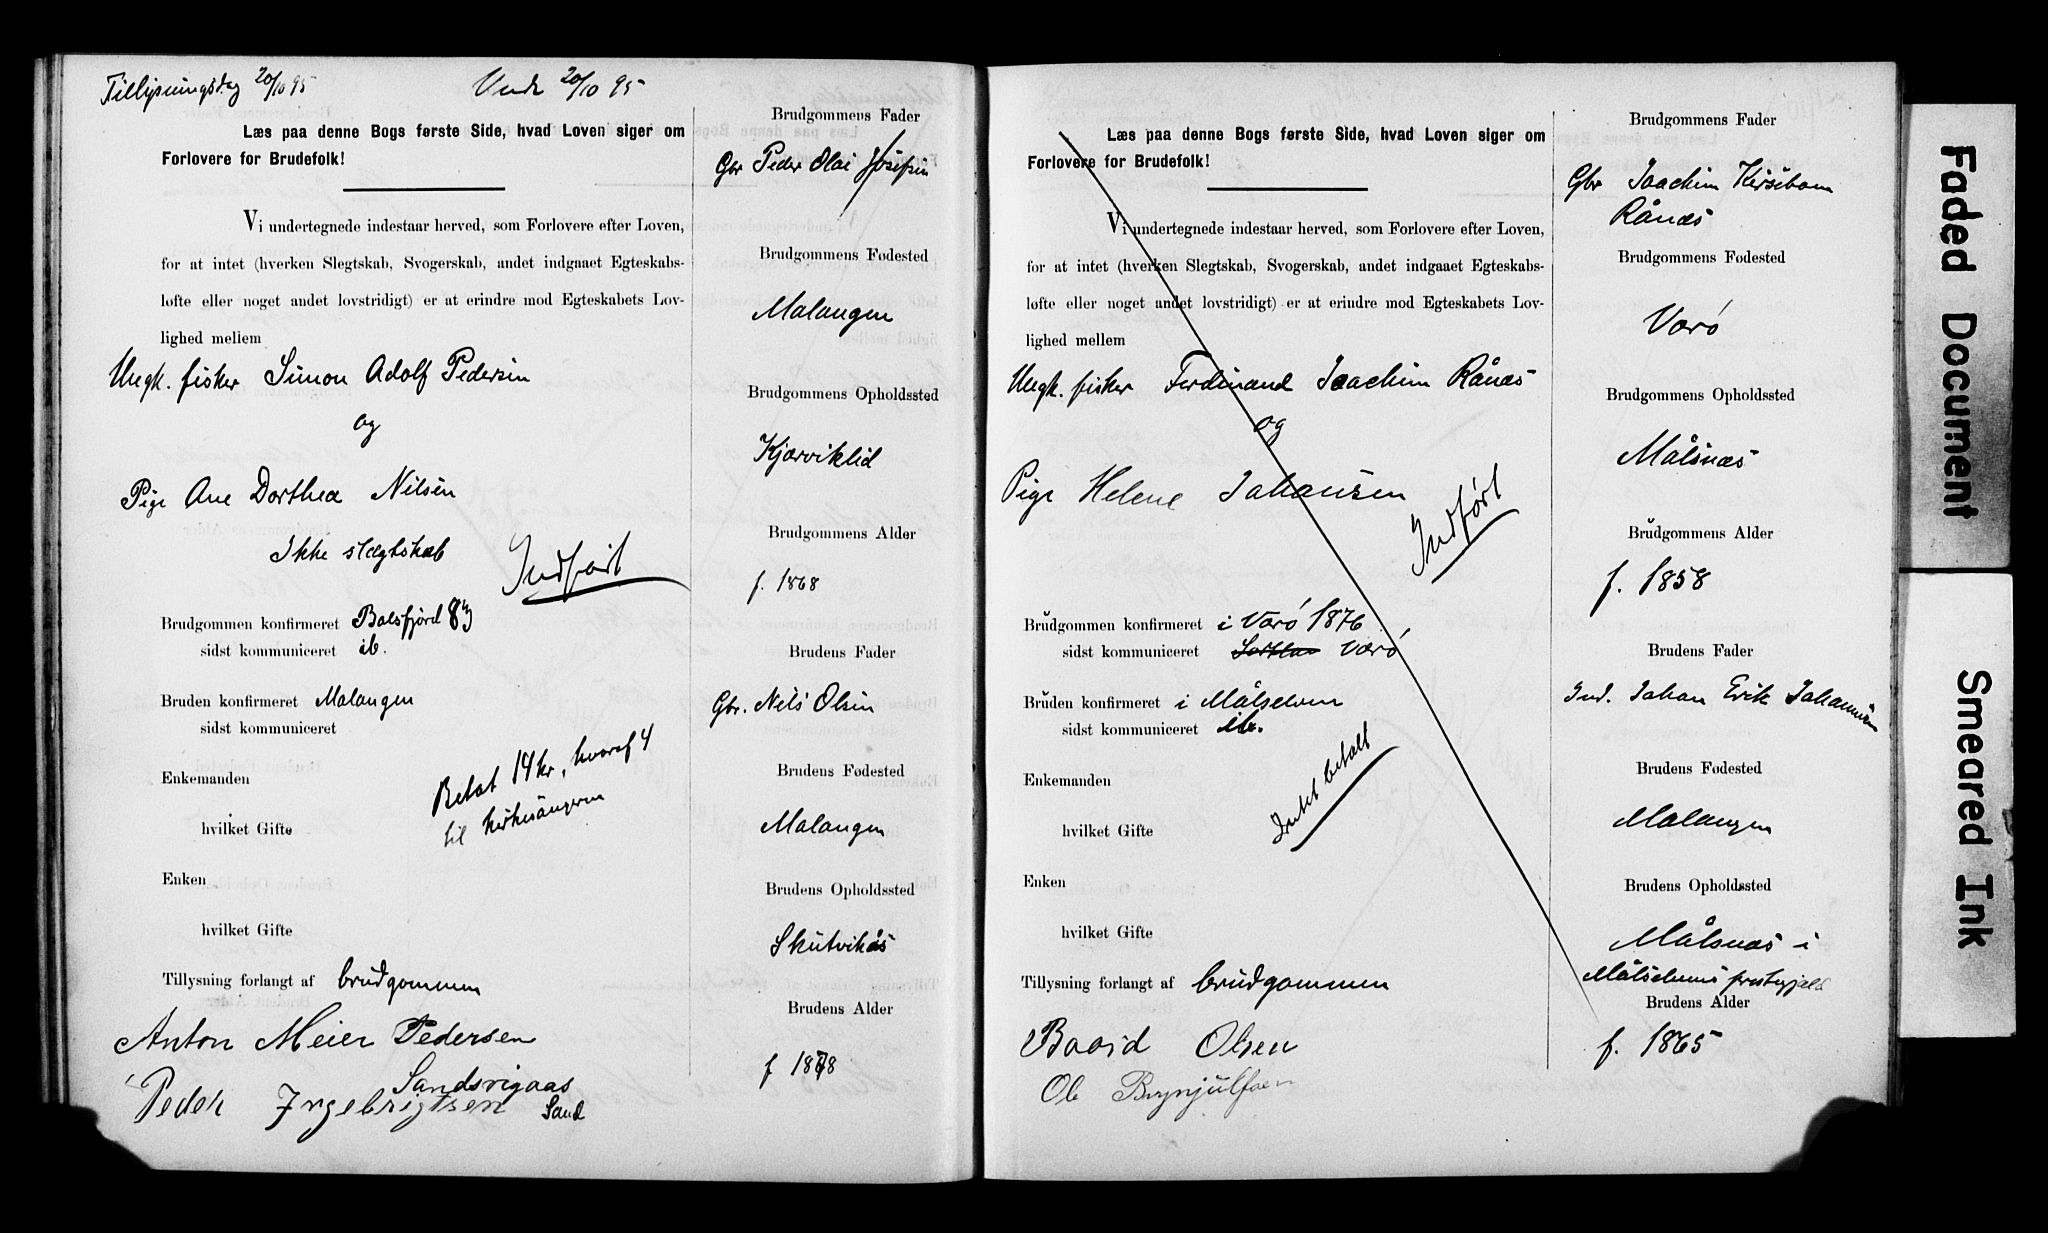 Tillysningsdag 20/10 95
Vudr 20/10 95
Læs paa denne Bogs første Side, hvad Loven siger om
Forlovere for Brudefolk!
Vi undertegnede indestaar herved, som Forlovere efter Loven,
for at intet (hverken Slegtskab, Svogerskab, andet indgaaet Egteskabs-
løfte eller noget andet lovstridigt) er at erindre mod Egteskabets Lov-
lighed mellem
Ungk. fisker Simon Adolf Pedersen
og
Pige Ane Dorthea Nilsen
Ikke slægtskab
Indført
Brudgommen konfirmeret Balsfjord 83
sidst kommuniceret ib.
Bruden konfirmeret Malangen
sidst kommuniceret
Betat 14 kr, hvoraf 4
til kirkesangeren
Enkemanden
hvilket Gifte
Enken
hvilket Gifte
Tillysning forlangt af brudgommen
Anton Meier Pedersen
Sandsvigaas
Peder Ingebrigtsen Sand
Brudgommens Fader
Gbr Peder Olai Josefsen
Brudgommens Fødested
Malangen
Brudgommens Opholdssted
Kjærviklid
Brudgommens Alder
f. 1868
Brudens Fader
Gbr. Nils Olsen
Brudens Fødested
Malangen
Brudens Opholdssted
Skutvikås
Brudens Alder
f 1878
Læs paa denne Bogs første Side, hvad Loven siger om
Forlovere for Brudefolk!
Vi undertegnede indestaar herved, som Forlovere efter Loven,
for at intet (hverken Slegtskab, Svogerskab, andet indgaaet Egteskabs-
løfte eller noget andet lovstridigt) er at erindre mod Egteskabets Lov-
lighed mellem
Ungk. fisker Ferdinand Joachim Rånæs
og
Pige Helene Johansen
Indført
Brudgommen konfirmeret i Værø 1876
sidst kommuniceret Værø
Bruden konfirmeret i Målselven
sidst kommuniceret ib.
Intet betalt
Enkemanden
hvilket Gifte
Enken
hvilket Gifte
Tillysning forlangt af brudgommen
Baard Olsen
Ole Brynjulfsen
Brudgommens Fader
Gbr Joachim Kirsebom
Rånæs
Brudgommens Fødested
Værø
Brudgommens Opholdssted
Målsnæs
Brudgommens Alder
f. 1858
Brudens Fader
Ind. Johan Erik Johannesen
Brudens Fødested
Malangen
Brudens Opholdssted
Målsnæs i
Målselvens prestegjeld
Brudens Alder
f. 1865
Faded Document
Smeared Ink